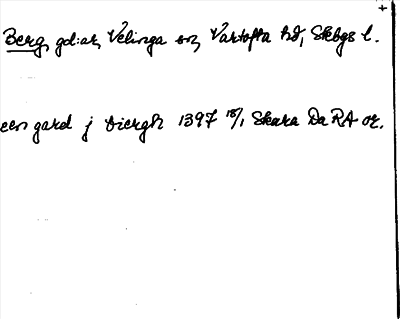 +
Berg, gd:ar, Velinga sn, Vartofta hd, Skbgs l.
een gard j biergh 1397 18/1 Skara Da RA or.